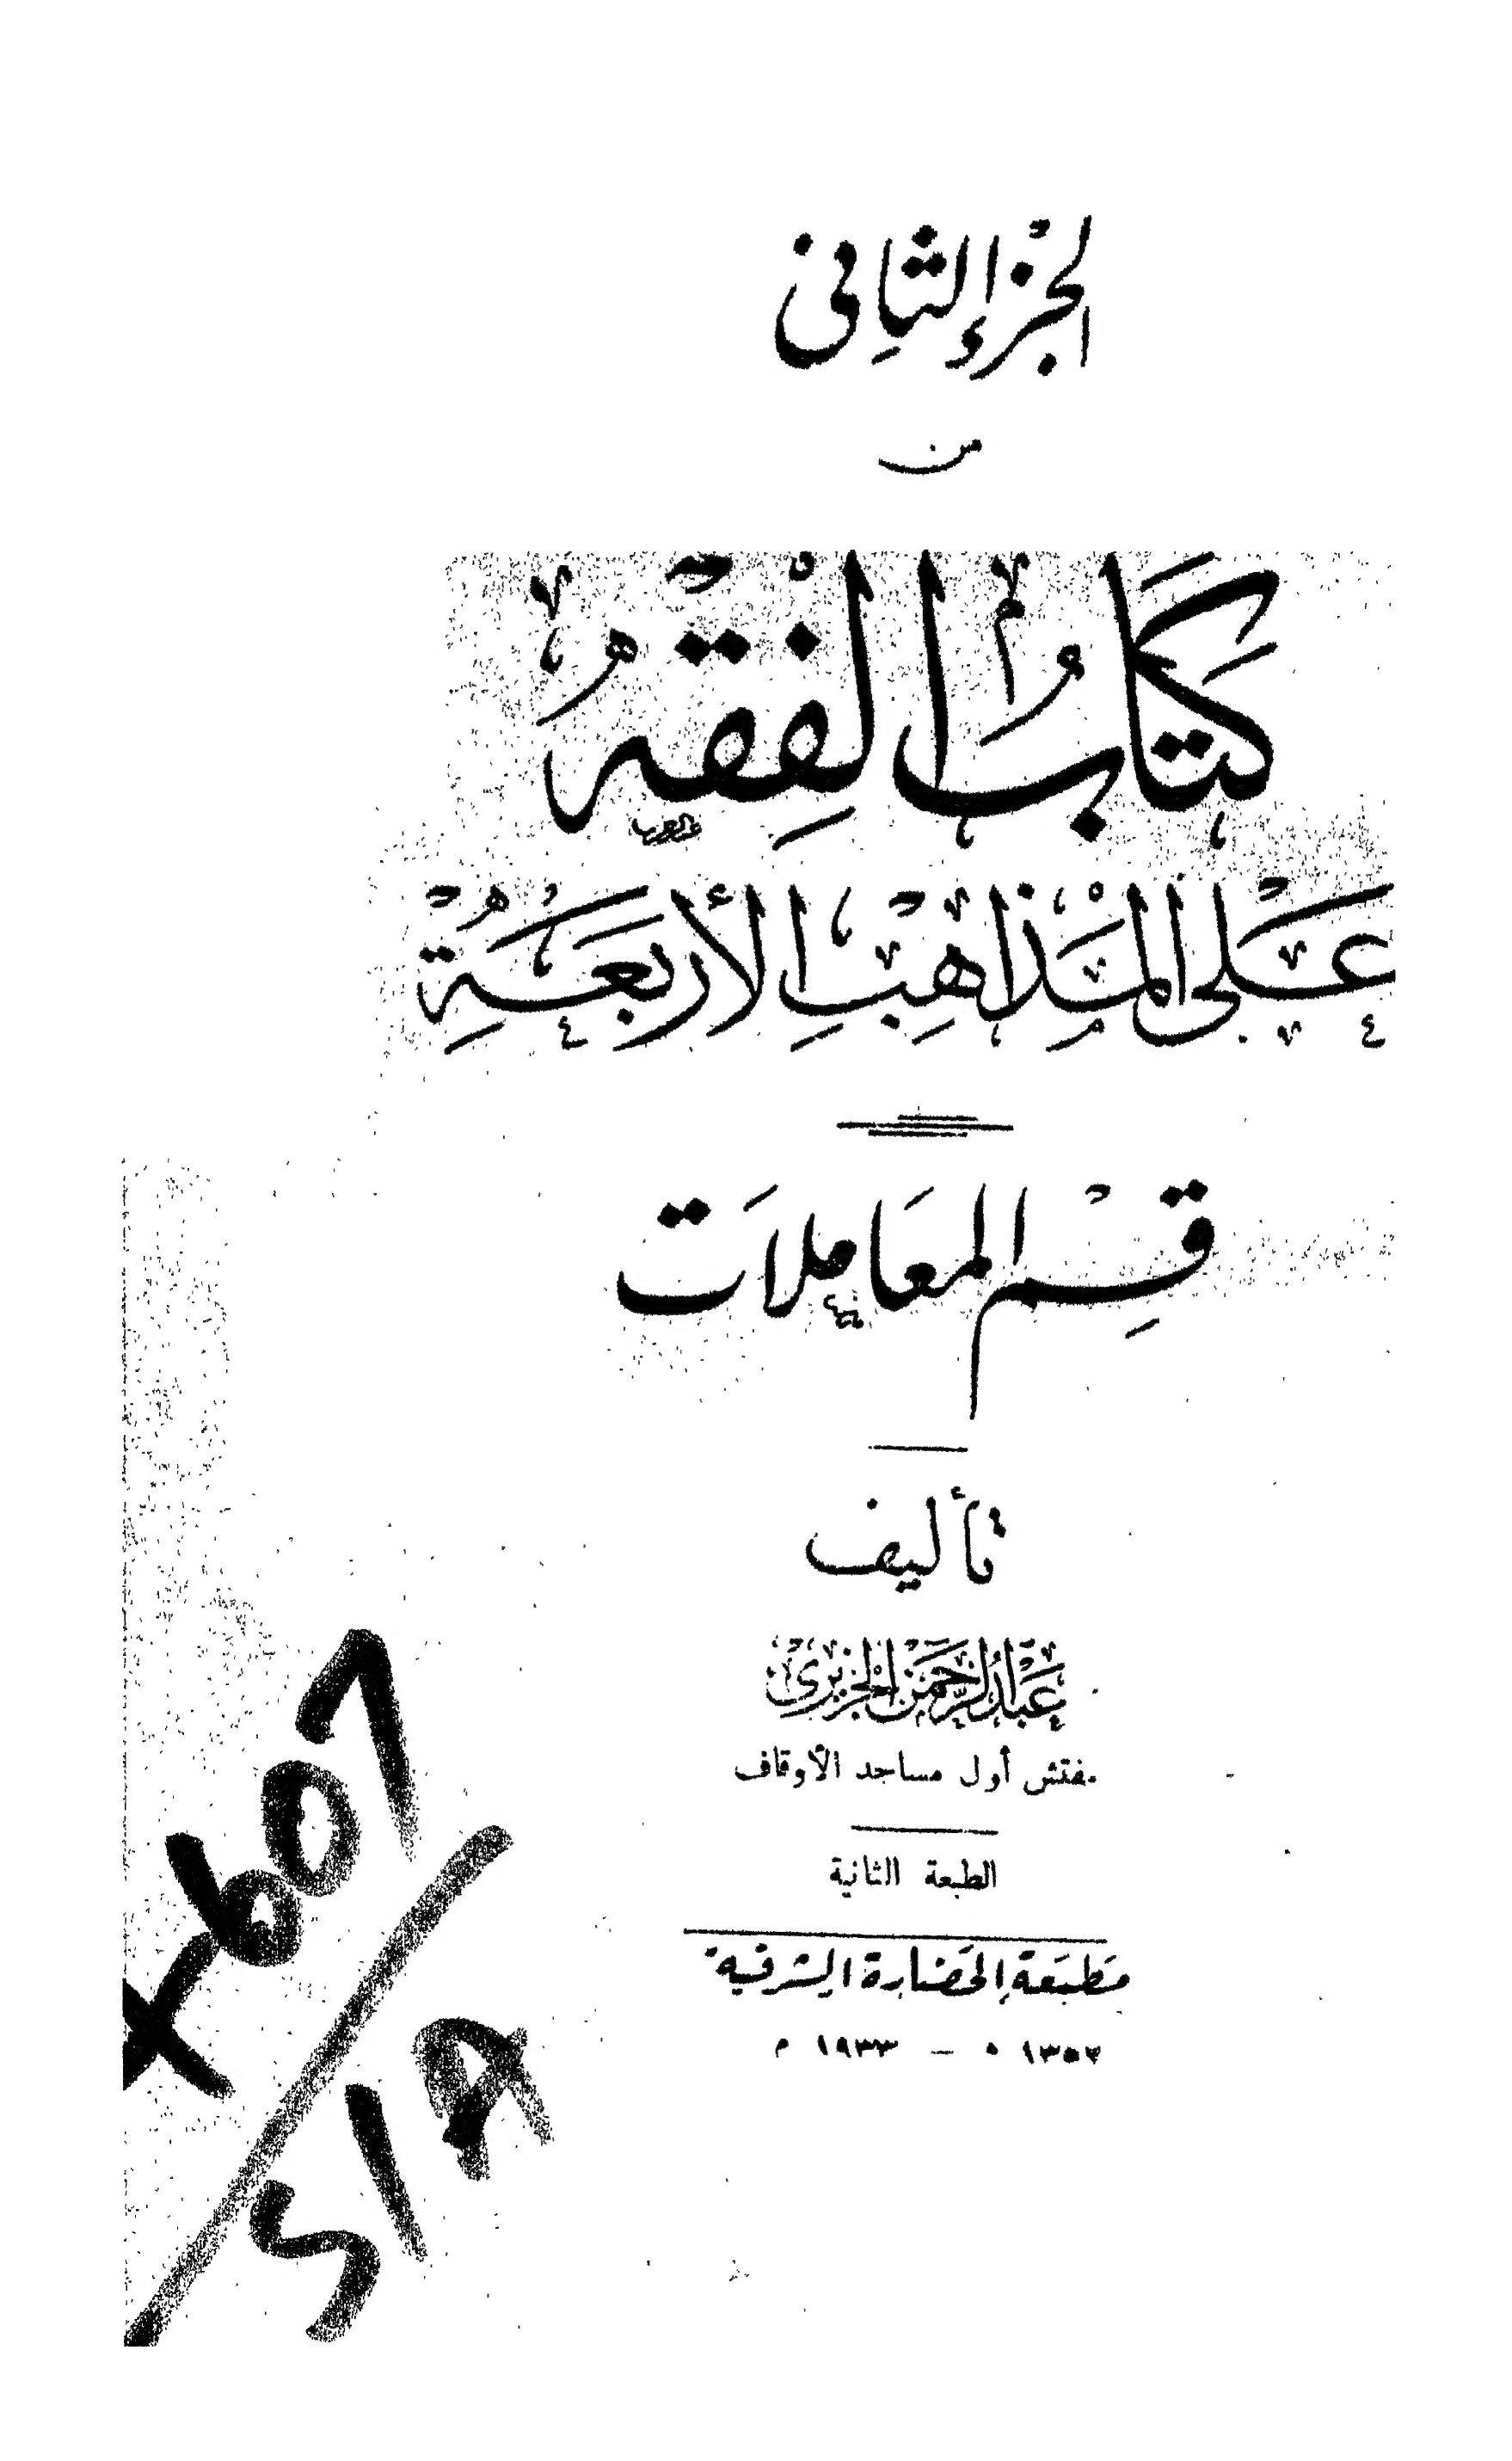 الجزء الثاني
من
كتاب الفقه
على المذاهب الأربعة
قسم المعاملات
تأليف
عبد الرحمن الجزيري
مفتش أول مساجد الأوقاف
الطبعة الثانية
مطبعة الحضارة الشرقية
١٣٥٢ ه – ١٩٣٣ م